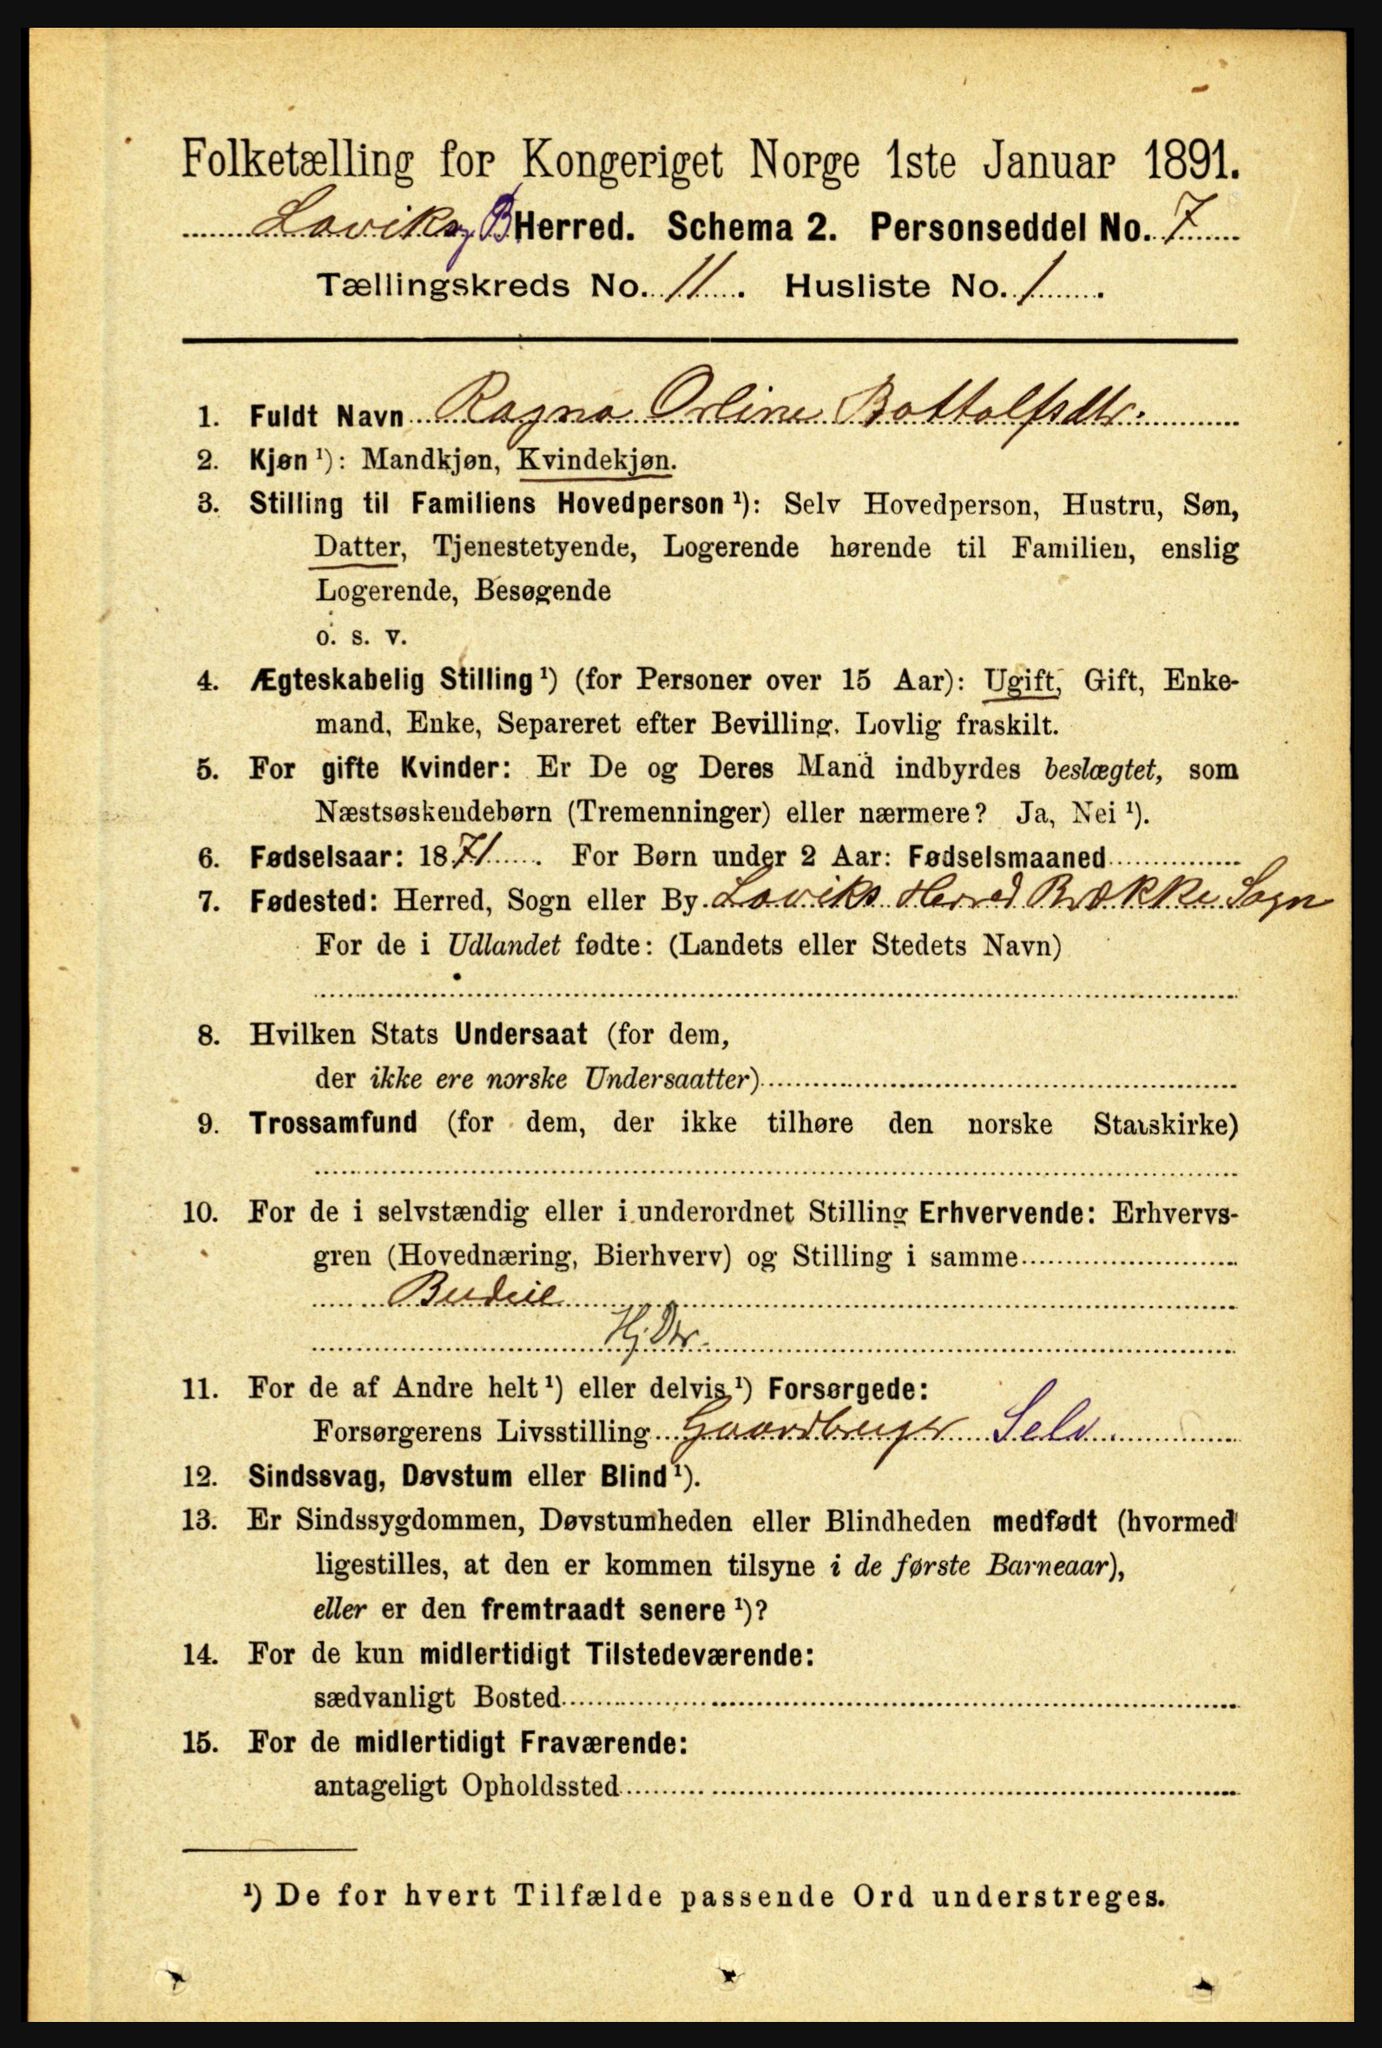 Folketælling for Kongeriget Norge 1ste Januar 1891.
Lavik og B Herred. Schema 2. Personseddel No. 7
Tællingskreds No. 11. Husliste No. 1.
1. Fuldt Navn Ragna Orline Bottolfsdtr.
2. Kjøn ¹): Mandkjøn, Kvindekjøn.
3. Stilling til Familiens Hovedperson ¹): Selv Hovedperson, Hustru, Søn,
Datter, Tjenestetyende, Logerende hørende til Familien, enslig
Logerende, Besøgende
o. s. v.
4. Ægteskabelig Stilling ¹) (for Personer over 15 Aar): Ugift, Gift, Enke-
mand, Enke, Separeret efter Bevilling. Lovlig fraskilt.
5. For gifte Kvinder: Er De og Deres Mand indbyrdes beslægtet, som
Næstsøskendebørn (Tremenninger) eller nærmere? Ja, Nei ¹).
6. Fødselsaar: 1871. For Børn under 2 Aar: Fødselsmaaned
7. Fødested: Herred, Sogn eller By Laviks Herred Brække Sogn
For de i Udlandet fødte: (Landets eller Stedets Navn)
8. Hvilken Stats Undersaat (for dem,
der ikke ere norske Undersaatter)
9. Trossamfund (for dem, der ikke tilhøre den norske Statskirke)
10. For de i selvstændig eller i underordnet Stilling Erhvervende: Erhvervs-
gren (Hovednæring, Bierhverv) og Stilling i samme
Budeie
Hj. Dtr.
11. For de af Andre helt ¹) eller delvis ¹) Forsørgede:
Forsørgerens Livsstilling Gaardbruger Selv.
12. Sindssvag, Døvstum eller Blind ¹).
13. Er Sindssygdommen, Døvstumheden eller Blindheden medfødt (hvormed
ligestilles, at den er kommen tilsyne i de første Barneaar),
eller er den fremtraadt senere ¹)?
14. For de kun midlertidigt Tilstedeværende:
sædvanligt Bosted
15. For de midlertidigt Fraværende:
antageligt Opholdssted
¹) De for hvert Tilfælde passende Ord understreges.